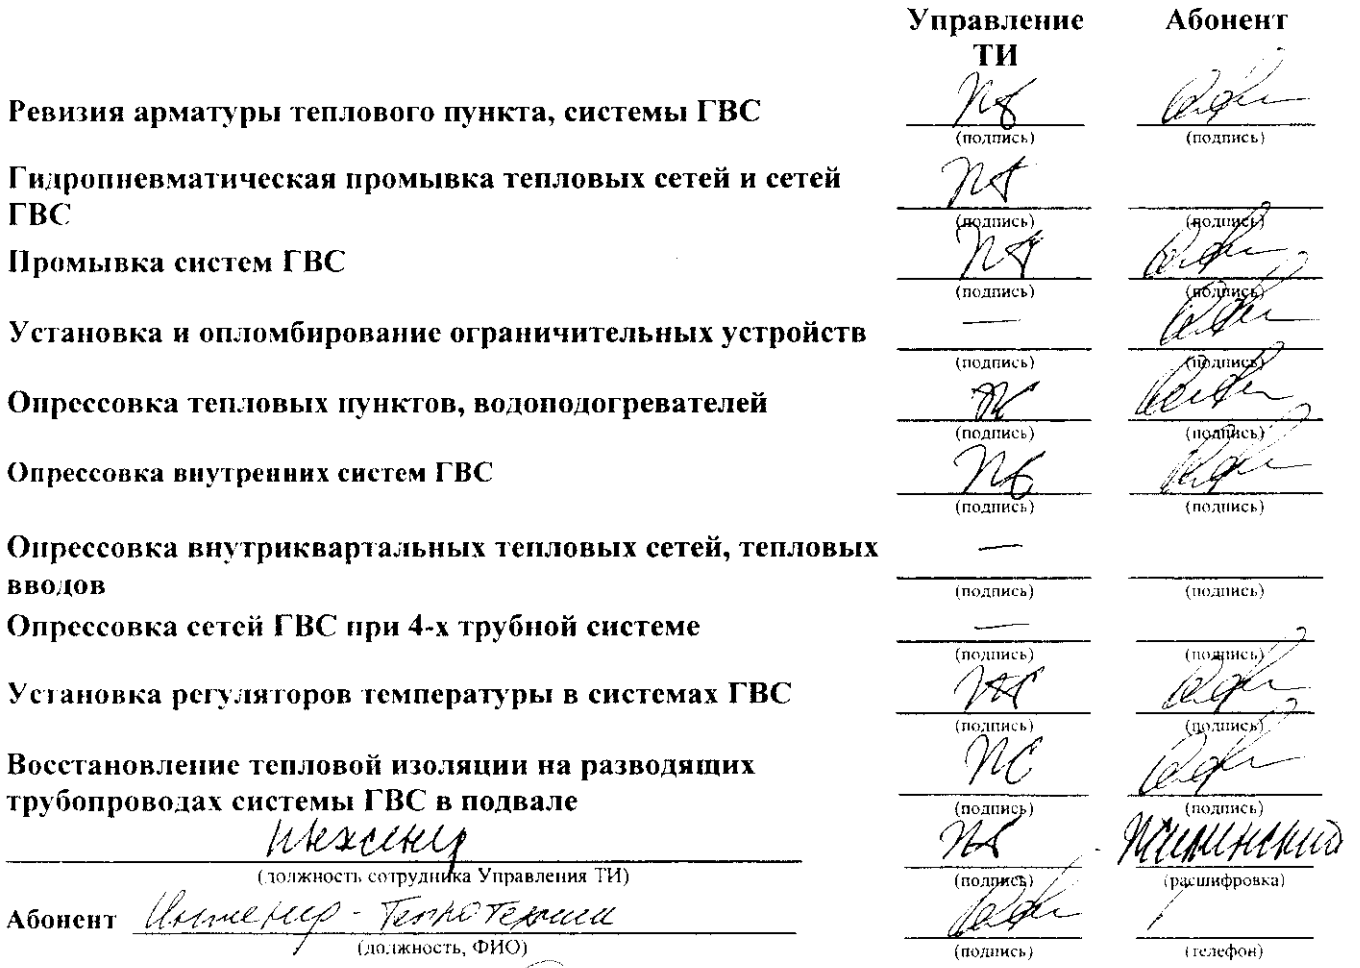 Управление Абонент
ТИ
Ревизия арматуры теплового пункта, системы ГВС
(подпись) (подпись)
Гидропневматическая промывка тепловых сетей и сетей
ГВС
(подпись) (подпись)
Промывка систем ГВС
(подпись) (подпись)
Установка и опломбирование ограничительных устройств —
(подпись) (подпись)
Опрессовка тепловых пунктов, водоподогревателей
(подпись) (подпись)
Опрессовка внутренних систем ГВС
(подпись) (подпись)
Опрессовка внутриквартальных тепловых сетей, тепловых —
вводов
(подпись) (подпись)
Опрессовка сетей ГВС при 4-х трубной системе —
(подпись) (подпись)
Установка регуляторов температуры в системах ГВС
(подпись) (подпись)
Восстановление тепловой изоляции на разводящих
трубопроводах системы ГВС в подвале
(подпись) (подпись)
Инженер
(должность сотрудника Управления ТИ) (подпись) (расшифровка)
Абонент Инженер-
(должность, ФИО) (подпись) (телефон)